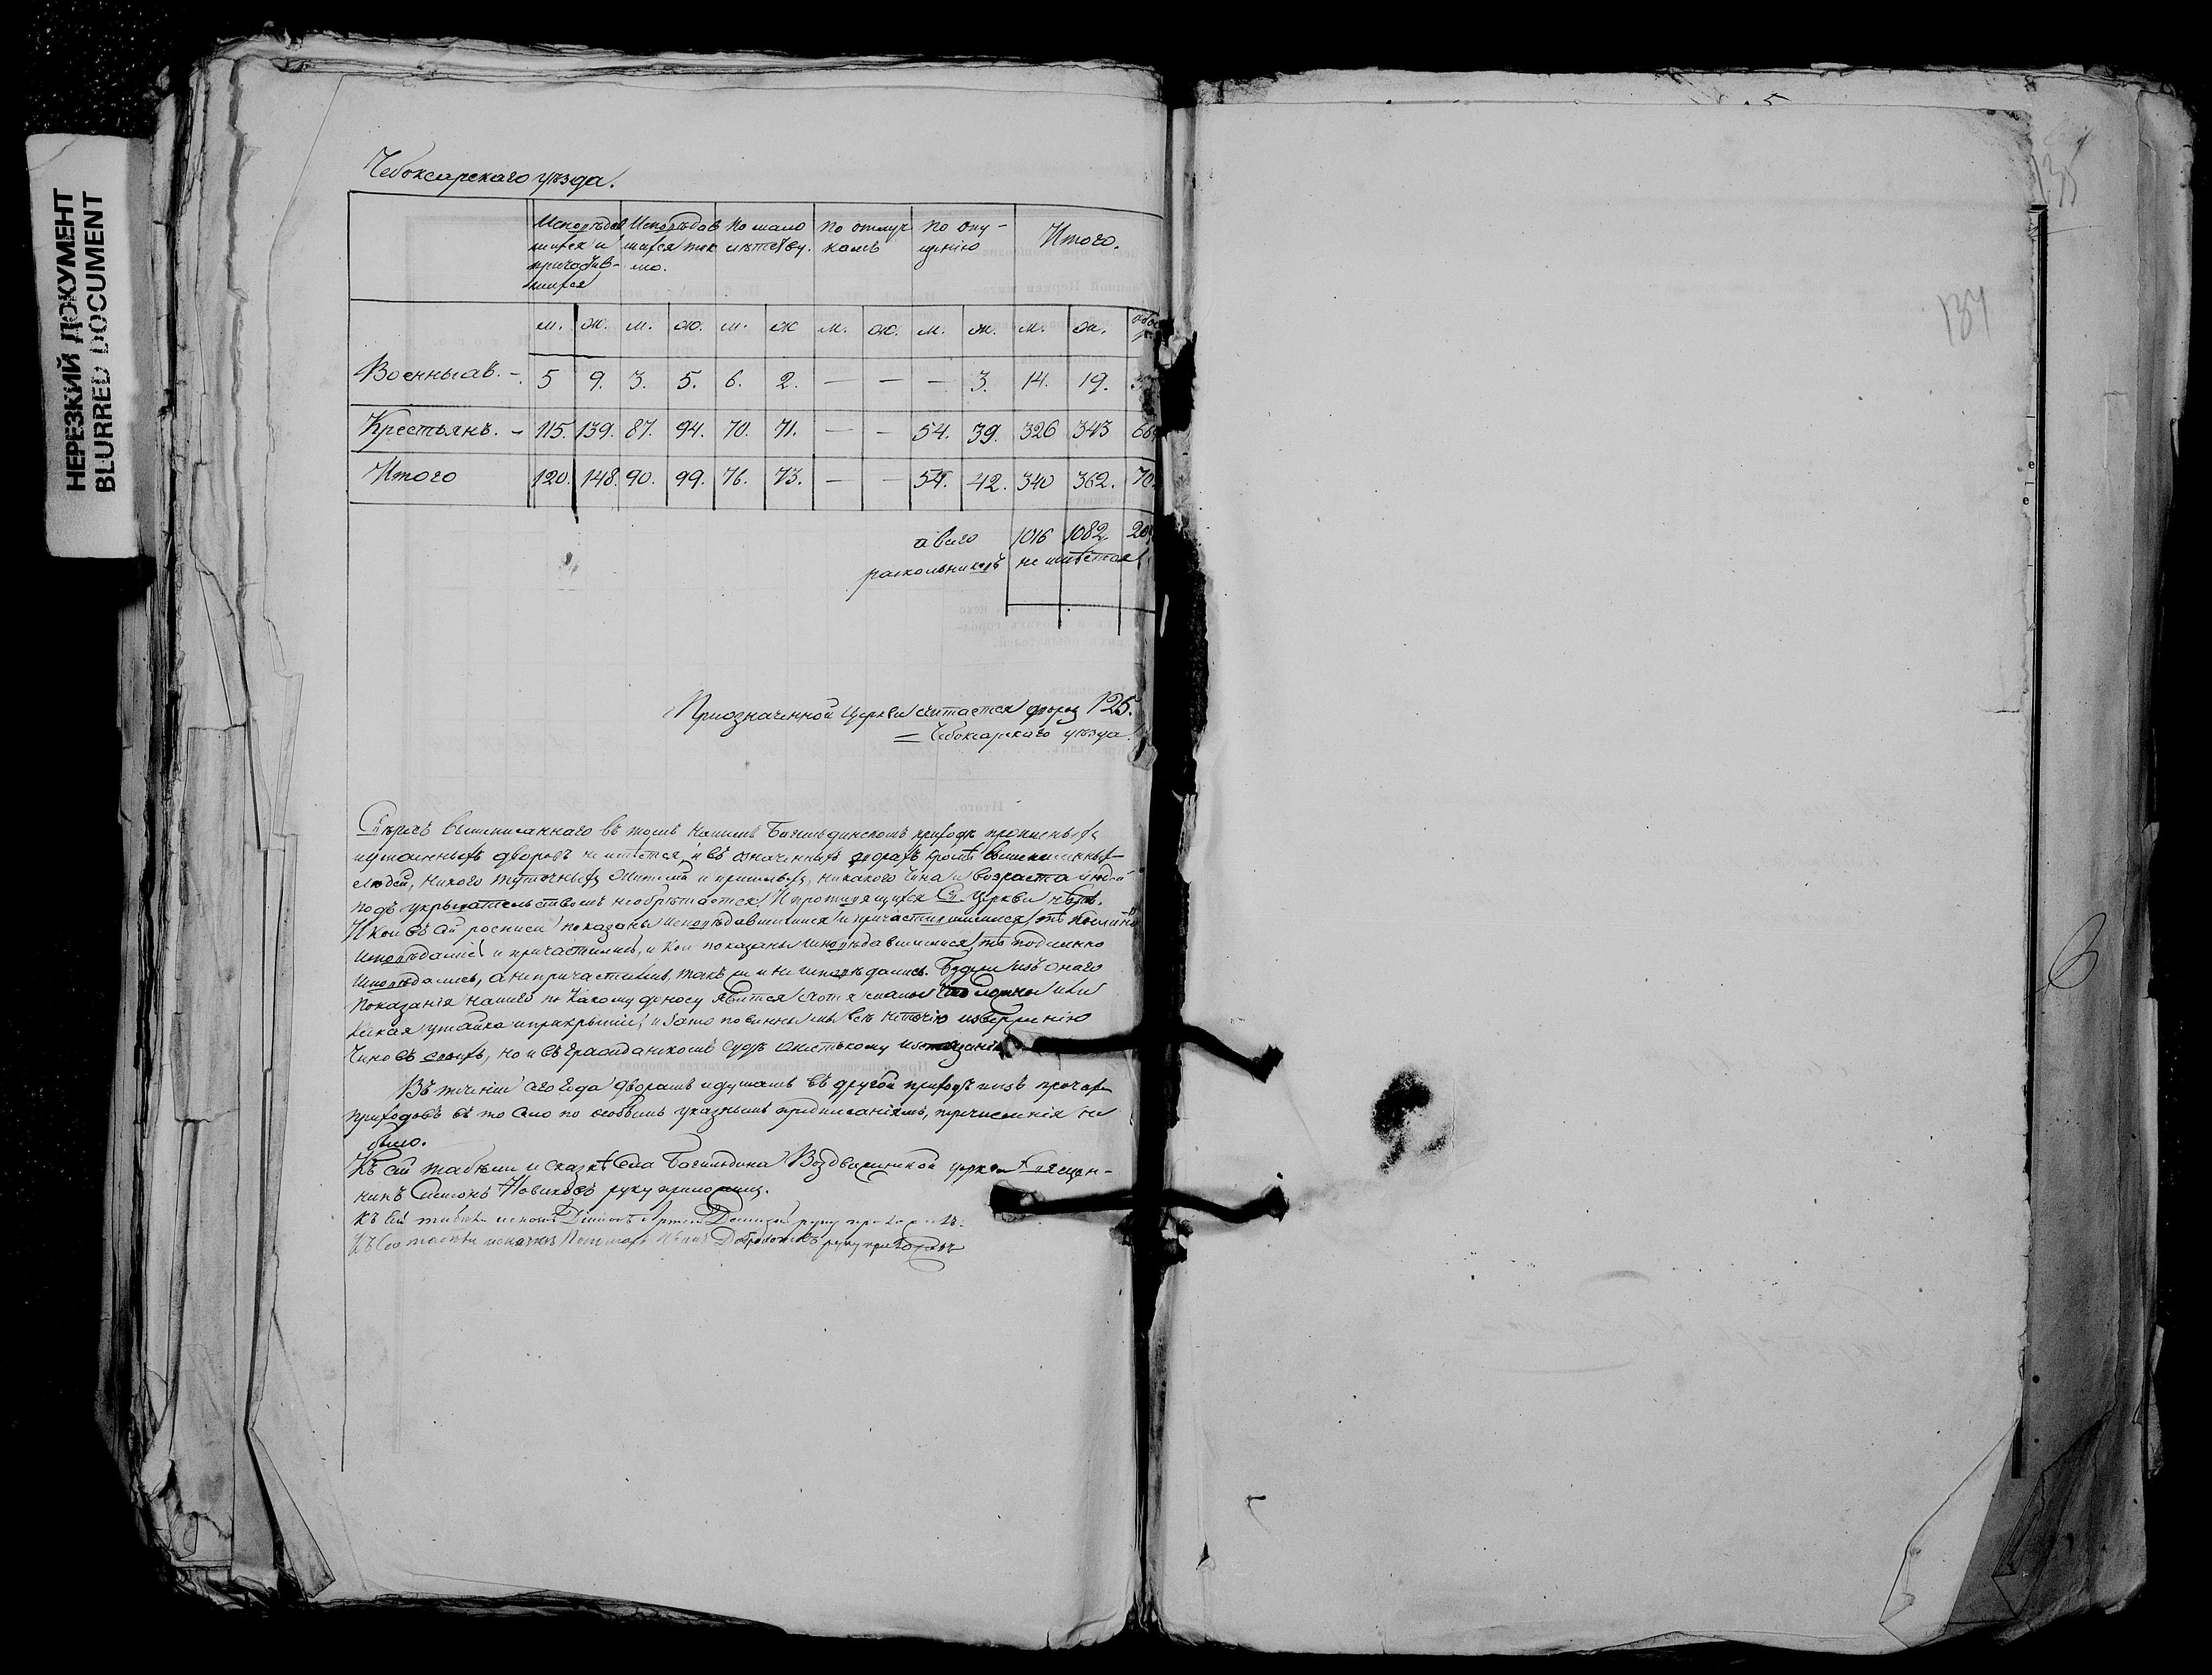 НЕРЕЗКИЙ ДОКУМЕНТ
BLURRED DOCUMENT
Чебоксарскаго уѣзда.
Исповѣдав Исповѣдав По мало По отлуч По опу- Итого.
шихся и шихся ток лѣтству. камъ щенію
причастив- мо.
шихся
м. ж. м. ж. м. ж м. ж. м. ж. м. ж. обое
Военныхъ в. - 5 9. 3. 5. 6. 2. — — — 3. 14. 19.
Крестьянъ. - 115. 139. 87. 94. 70. 71. — — 54. 39. 326 343 66
Итого 120. 148. 90. 99. 76. 73. — — 54. 42. 340 362. 70
а всего 1016 1082. 209
раскольниковъ не имѣется
Приозначенной церкви считается двороу 125.
= Чебоксарскаго уѣзда.
Сверхъ вышеписаннаго въ томъ нашемъ Богильдинскомъ приходѣ прописныхъ
и утаенныхъ дворовъ не имѣется, и въ означенныхъ дворахъ кромѣ вышеписанныхъ
людей, никого жителей и пришлыхъ, никакого чина и возраста людей
подъ укрывательствомъ необрѣтается. И противящихся Св. Церкви нѣтъ.
И кои въ сей росписи показаны исповѣдавшимися и причастившимися, тѣ
исповѣдались и причастились, и кои показаны исповѣдавшимися, тѣ подлинно
исповѣдались, а не причастились, такъ же и не исповѣдались. Будеже изъ онаго
показанія нашего по какому доносу явится хотя малое что ложное или
какая утайка и прикрытіе, и зато повинны мы все не точію изверженію
чиновъ своихъ, но и въ гражданскомъ судѣ жестокому истязанію
Въ теченіи сего года дворамъ и душамъ въ другой приходъ и изъ прочихъ
приходовъ въ то село по особымъ указнымъ предписаніямъ, причисленія не
было.
Къ сей табели и сказкѣ села Богильдина Воздвиженской церкви Священ-
никъ Симонъ Новиковъ руку приложилъ.
Къ сей табели и сказкѣ руку приложилъ.
Къ сей табели и сказкѣ Пономарь руку приложилъ
134
135
6